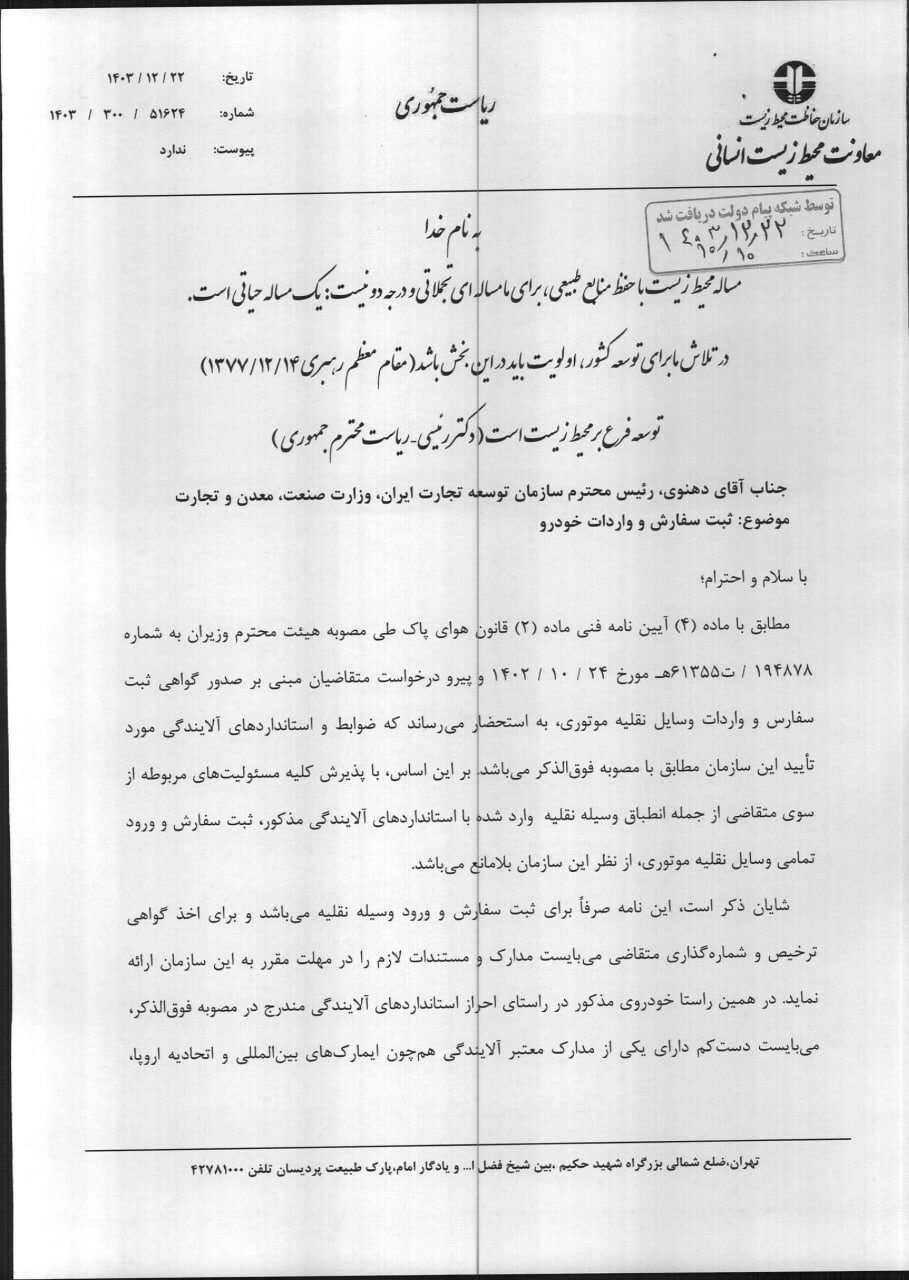 تاریخ: ۱۴۰۳/۱۲/۲۲
شماره: ۵۱۶۲۴ / ۳۰۰ / ۱۴۰۳
پیوست: ندارد
ریاست جمهوری
سازمان حفاظت محیط زیست
معاونت محیط زیست انسانی
توسط شبکه پیام دولت دریافت شد
تاریخ: ۱۴۰۳/۱۲/۲۲
ساعت: ۱۰/۱۰
به نام خدا
مساله محیط زیست با حفظ منابع طبیعی، برای ما مساله ای تجملاتی و درجه دو نیست: یک مساله حیاتی است.
در تلاش ما برای توسعه کشور، اولویت باید در این بخش باشد (مقام معظم رهبری ۱۳۷۷/۱۲/۱۴)
توسعه فرع بر محیط زیست است (دکتر رئیسی-ریاست محترم جمهوری)
جناب آقای دهنوی، رئیس محترم سازمان توسعه تجارت ایران، وزارت صنعت، معدن و تجارت
موضوع: ثبت سفارش و واردات خودرو
با سلام و احترام؛
مطابق با ماده (۴) آیین نامه فنی ماده (۲) قانون هوای پاک طی مصوبه هیئت محترم وزیران به شماره
۱۹۴۸۷۸ / ت۶۱۳۵۵هـ مورخ ۲۴ / ۱۰ / ۱۴۰۲ و پیرو درخواست متقاضیان مبنی بر صدور گواهی ثبت
سفارس و واردات وسایل نقلیه موتوری، به استحضار می‌رساند که ضوابط و استانداردهای آلایندگی مورد
تأیید این سازمان مطابق با مصوبه فوق‌الذکر می‌باشد. بر این اساس، با پذیرش کلیه مسئولیت‌های مربوطه از
سوی متقاضی از جمله انطباق وسیله نقلیه وارد شده با استانداردهای آلایندگی مذکور، ثبت سفارش و ورود
تمامی وسایل نقلیه موتوری، از نظر این سازمان بلامانع می‌باشد.
شایان ذکر است، این نامه صرفاً برای ثبت سفارش و ورود وسیله نقلیه می‌باشد و برای اخذ گواهی
ترخیص و شماره‌گذاری متقاضی می‌بایست مدارک و مستندات لازم را در مهلت مقرر به این سازمان ارائه
نماید. در همین راستا خودروی مذکور در راستای احراز استانداردهای آلایندگی مندرج در مصوبه فوق‌الذکر،
می‌بایست دست‌کم دارای یکی از مدارک معتبر آلایندگی هم‌چون ایمارک‌های بین‌المللی و اتحادیه اروپا،
تهران،ضلع شمالی بزرگراه شهید حکیم ،بین شیخ فضل ا... و یادگار امام،پارک طبیعت پردیسان تلفن ۴۲۷۸۱۰۰۰